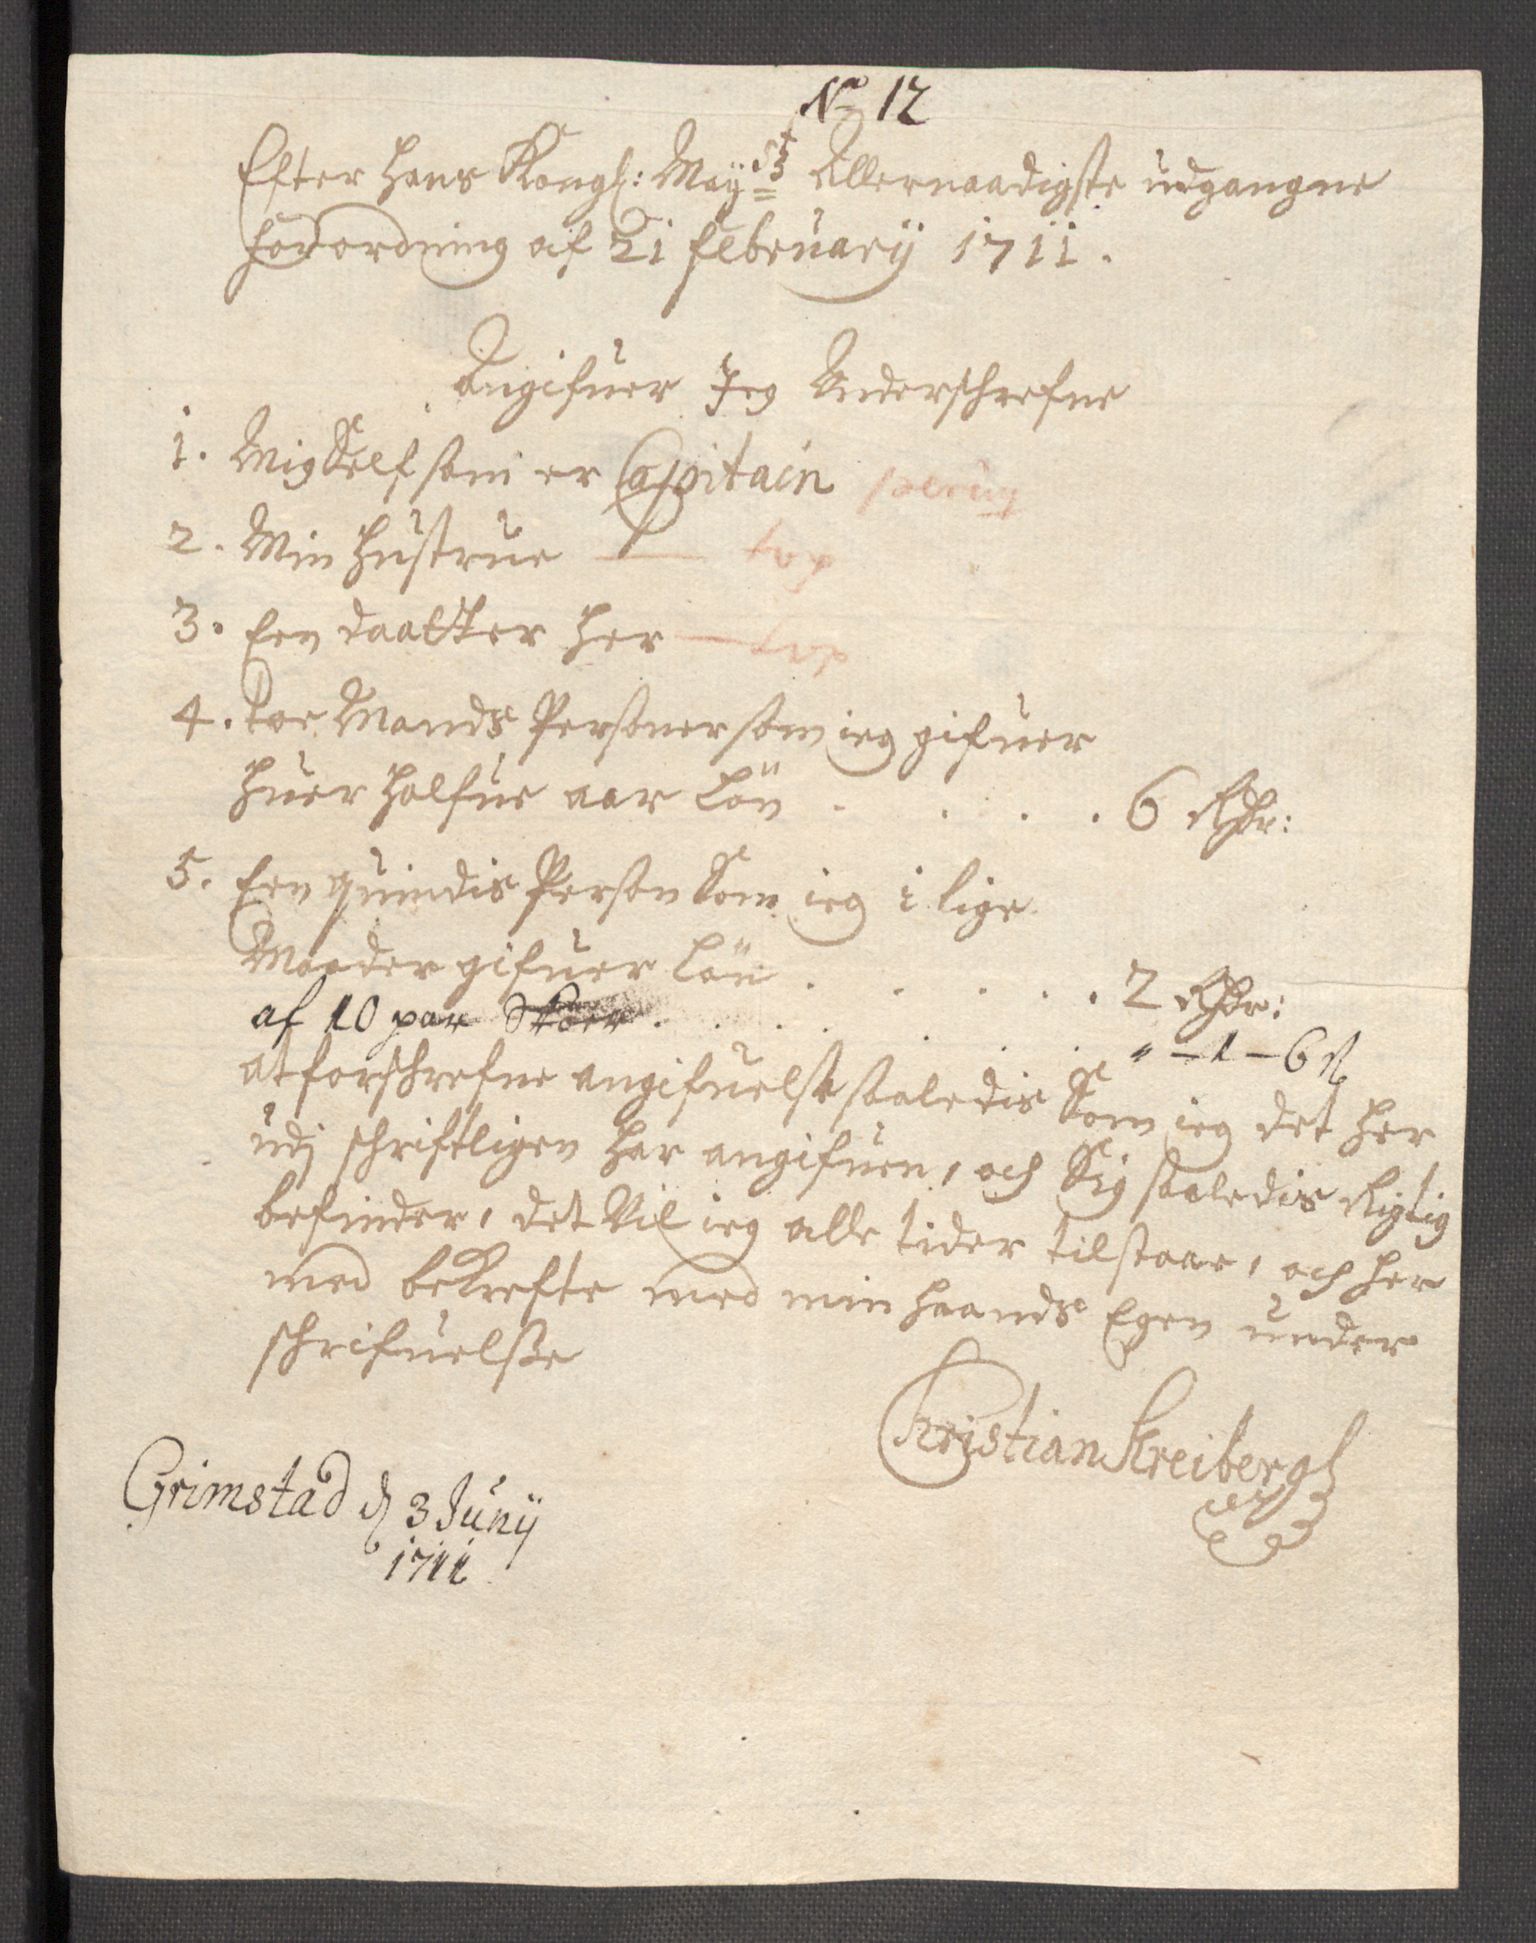 No 12
Efter Hans Kongl: Mayst: Allernaadigste udgangne
forordning af 21 february 1711.
Angifuer Jeg Underschrefne
1. Mig Self som er Capitain perug
2. Min Hustrue — top
3. Een daatter her — top
4. toe Mands Personer som ieg gifuer
huer halfue aar Lön . . . . 6 Rdr:
5. Een quindis Person Som ieg i lige
Maader gifuer Lön . . . . . 2 Rdr:
af 10 par Skoer . . . . . . " – 1 – 6 s
at forschrefne angifuelse saaledis Som ieg det her
udj schriftligen har angifuen, och Sig saaledis Rigtig
befinder, det Vil ieg alle tider tilstaae, och her
med bekrefte med min haands Egen under
schrifuelsse
Christian Kreibergh
Grimstad d 3 Junij
1711